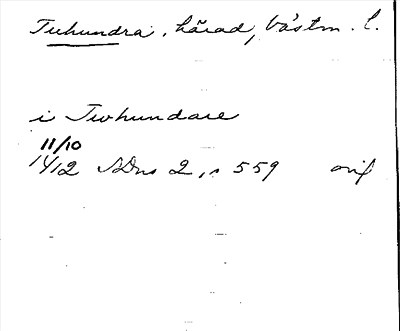 Tuhundra, härad, Västm. l.
i Twhundare
11/10
1412 SDns 2, s 559 orig